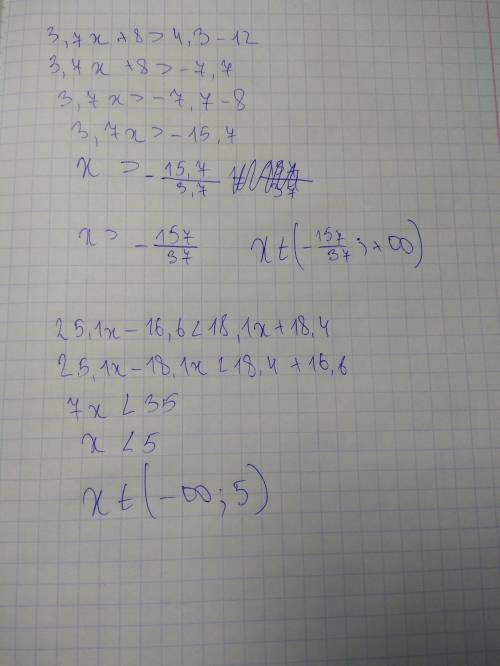 3,7x+8>4,3-12
3,7x+8>-7,7
3,7x>-7,7-8
3,7x>-15,7
x>-15,7/3,7
x>-157/37 x∈(-157/37;+∞)
25,1x-16,6<18,1x+18,4
25,1x-18,1x<18,4+16,6
7x<35
x<5
x∈(-∞;5)